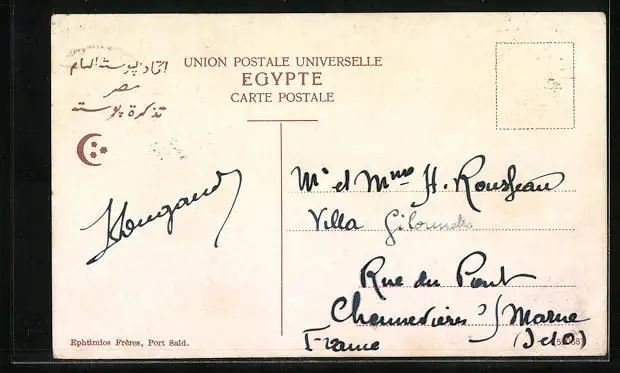 اتحاد پوسته العام
مصر
تذكرة پوسته
UNION POSTALE UNIVERSELLE
EGYPTE
CARTE POSTALE
Mr et Mme H. Rousseau
Villa
Rue du Pont
Chennevières s/ Marne
(S et O)
France
Ephtimios Frères, Port Said.